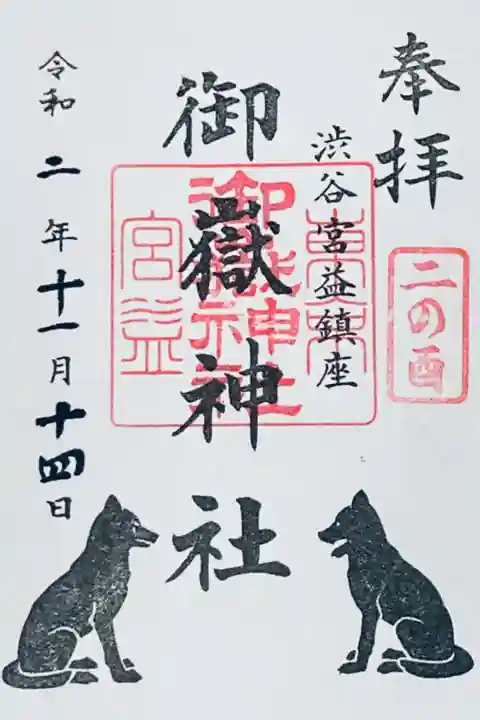 奉拝
二の酉
渋谷宮益鎮座
御嶽神社
御嶽神社
宮益
令和二年十一月十四日